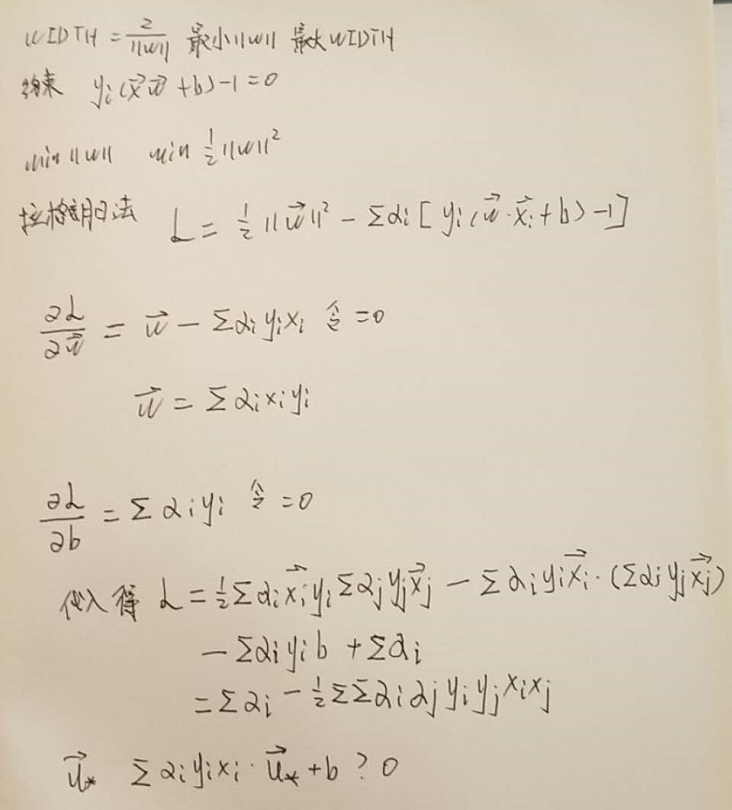 WIDTH = 2/||w|| 最小||w|| 最大WIDTH
约束 yi(x⃗w⃗ +b)-1=0
min ||w|| min 1/2||w||²
拉格朗日法 L = 1/2||w⃗||² - Σαi[yi(w⃗·x⃗i+b)-1]
∂L/∂w⃗ = w⃗ - Σαiyixi 令=0
w⃗ = Σαixiyi
∂L/∂b = Σαiyi 令=0
代入得 L = 1/2Σαix⃗iyiΣαjyjx⃗j - Σαiyix⃗i·(Σαjyjx⃗j)
-Σαiyib +Σαi
=Σαi - 1/2ΣΣαiαjyiyjxixj
u⃗* Σαiyixi·u⃗*+b ? 0